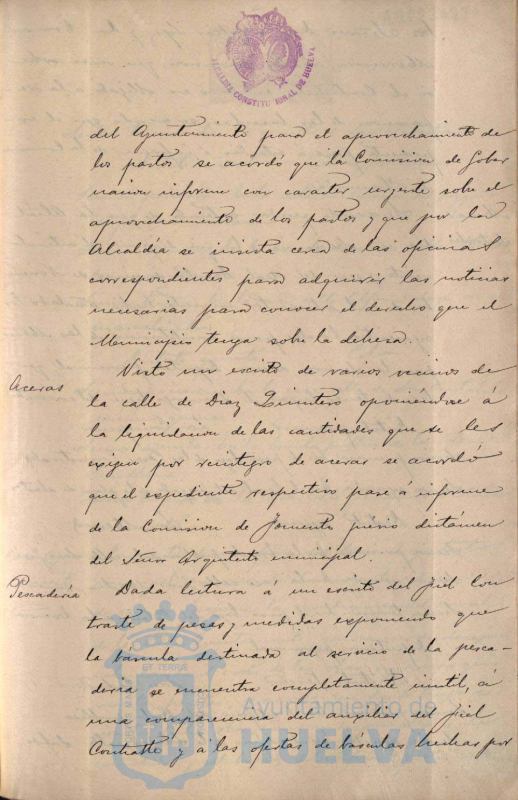 ALCALDIA CONSTITUCIONAL DE HUELVA
del Ayuntamiento para el aprovechamiento de
los pastos se acordó que la Comision de Gober
nacion informe con caracter urgente sobre el
aprovechamiento de los pastos y que por la
Alcaldía se insista cerca de las oficinas
correspondientes para adquirir las noticias
necesarias para conocer el derecho que el
Municipio tenga sobre la dehesa.
Aceras
Visto un escrito de varios vecinos de
la calle de Diaz Quintero oponiéndose á
la liquidacion de las cantidades que se les
exigen por reintegro de aceras se acordó
que el expediente respectivo pase á informe
de la Comision de Fomento previo dictámen
del Señor Arquitecto municipal.
Pescadería
Dada lectura á un escrito del fiel Con
traste de pesas y medidas exponiendo que
la báscula destinada al servicio de la pesca-
deria se encuentra completamente inutil, á
una comparecencia del auxiliar del fiel
Contraste y á las ofertas de básculas hechas por
Ayuntamiento de
HUELVA